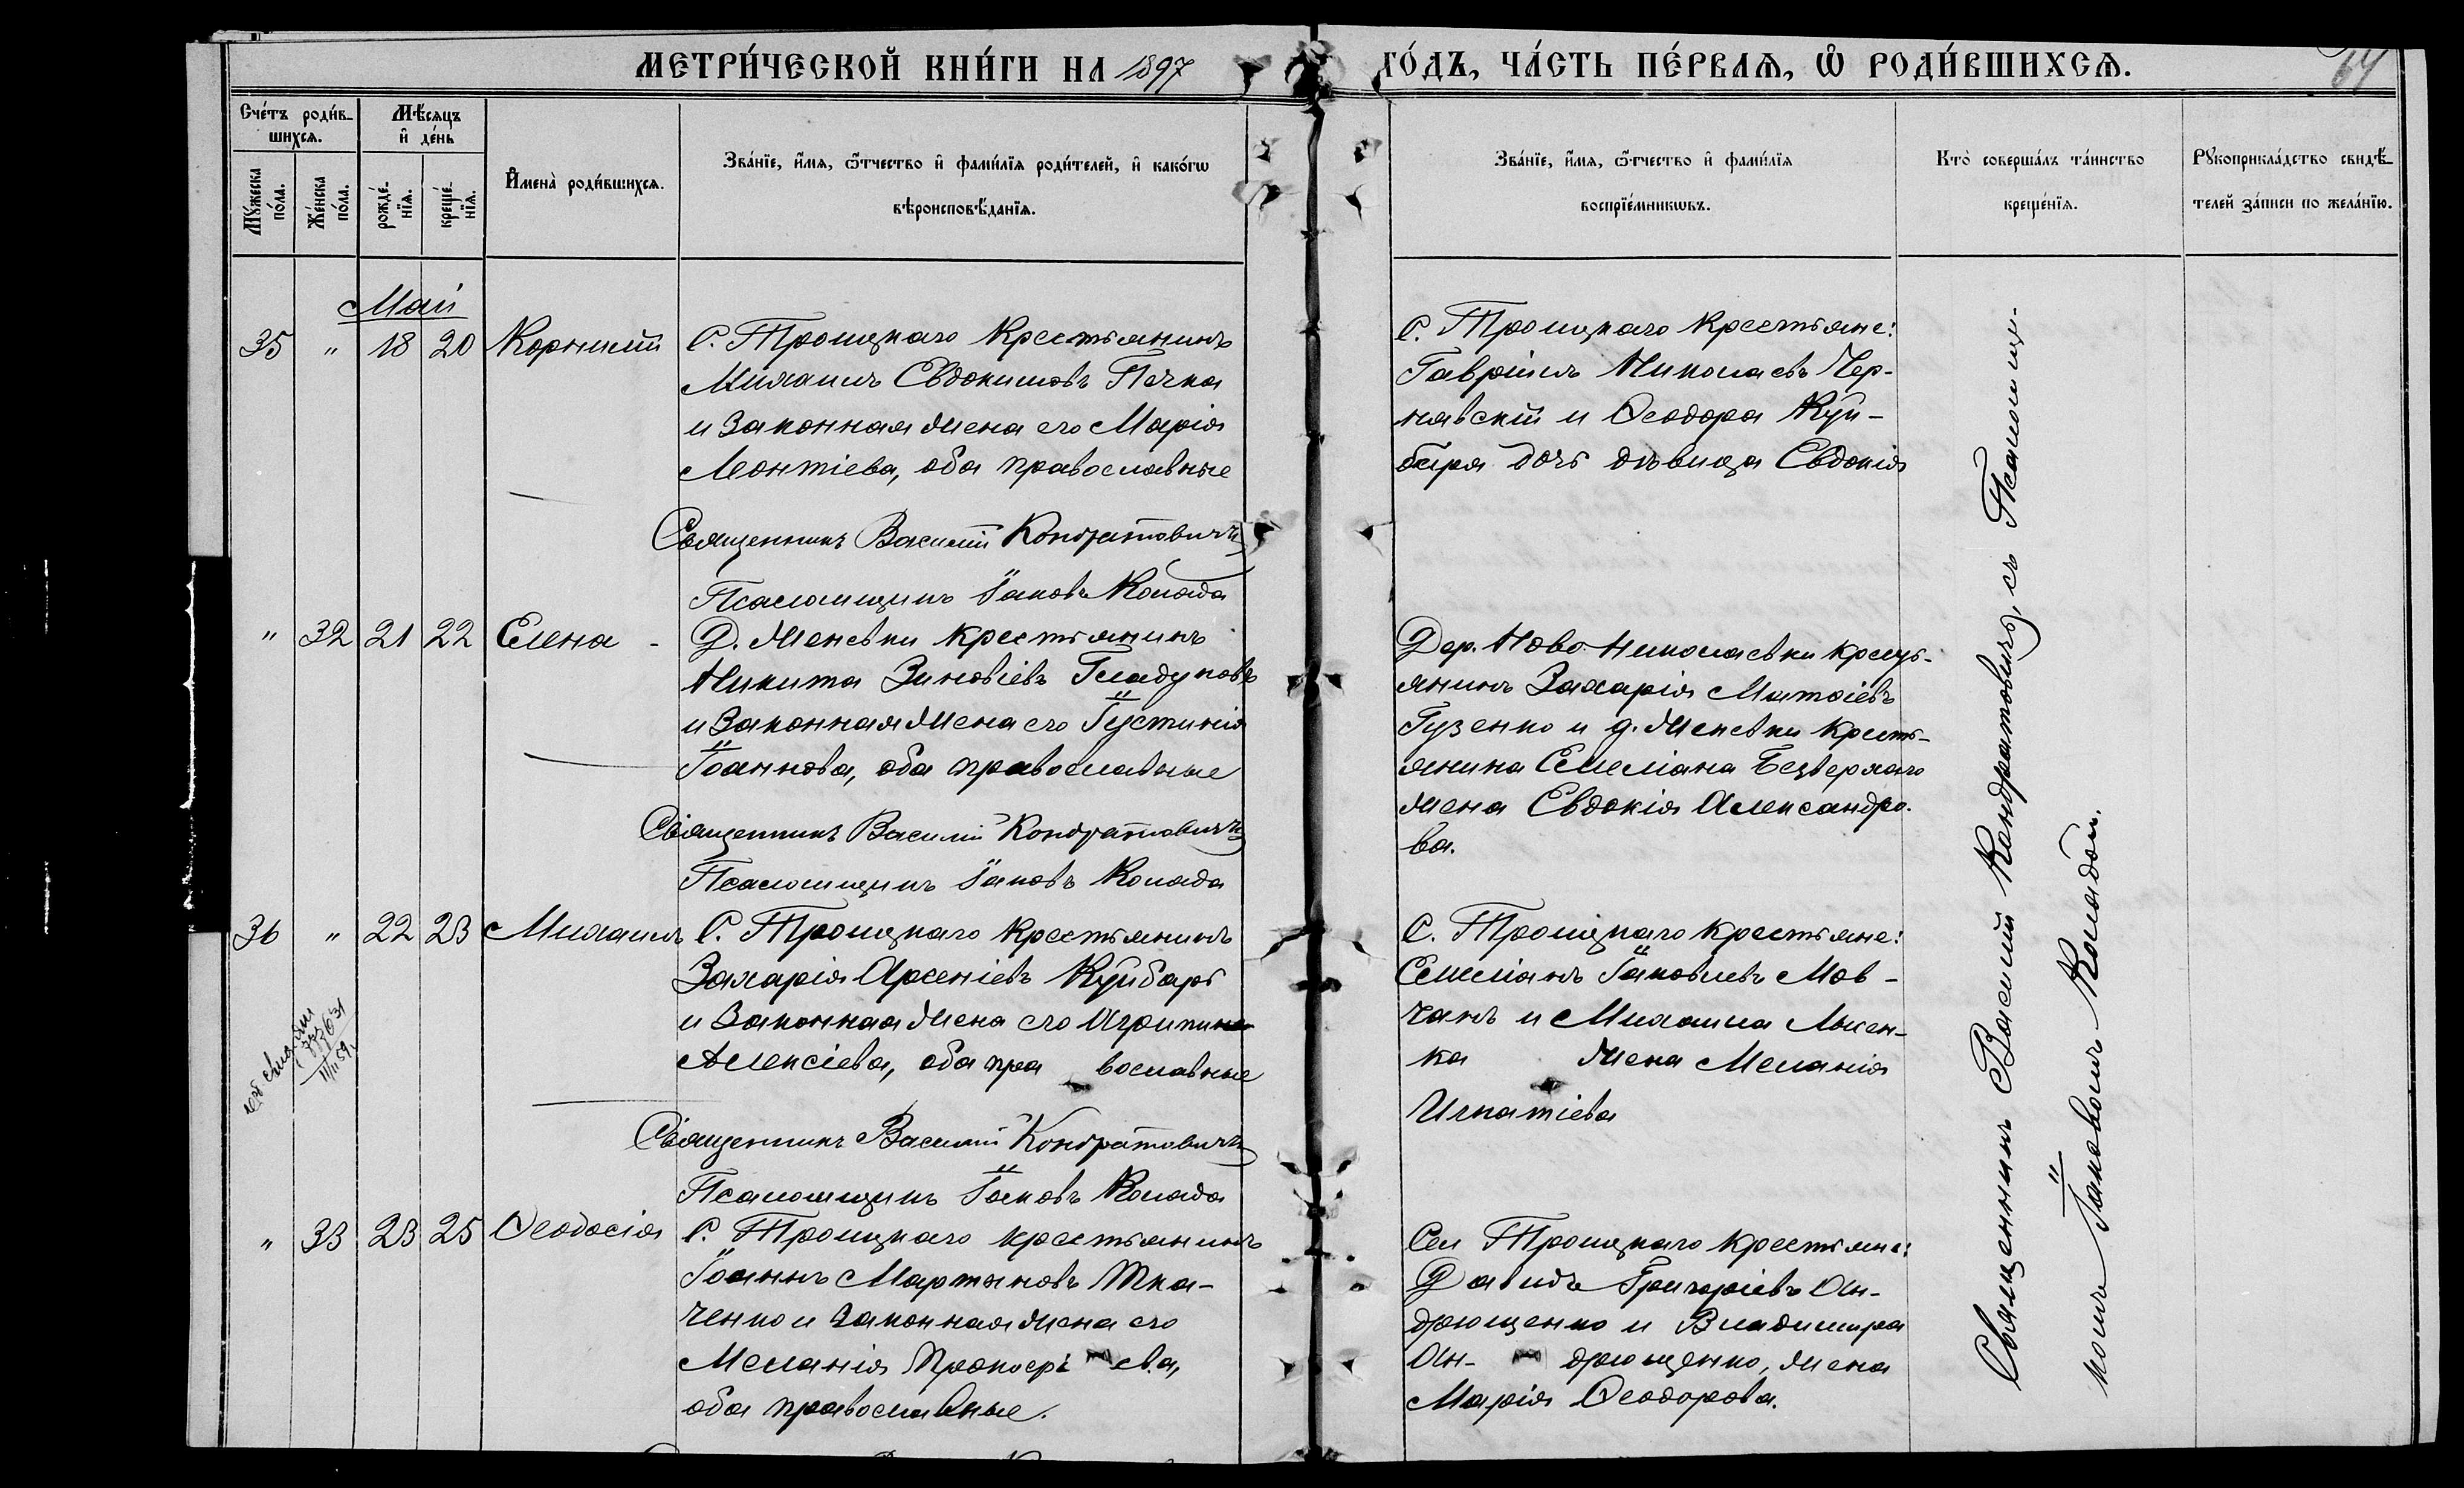 МЕТРИ́ЧЕСКОЙ КНИ́ГИ НА 1897
ГО́ДЪ, ЧА́СТЬ ПЕ́РВАѦ, Ѡ҆ РОДИ́ВШИХСѦ.
64
Сче́тъ роди́в-
шихсѧ.
Мѣ́сѧцъ
и҆ де́нь
Мꙋ́жеска
по́ла.
Же́нска
по́ла.
рожде́-
нїѧ.
креще́-
нїѧ.
И҆мена̀ роди́вшихсѧ.
Зва́нїе, и҆́мѧ, ѻ҆́тчество и҆ фами́лїѧ роди́телей, и҆ како́гѡ
вѣроисповѣ́данїѧ.
Зва́нїе, и҆́мѧ, ѻ҆́тчество и҆ фами́лїѧ
воспрїе́мникѡвъ.
Кто̀ соверша́лъ та́инство
креще́нїѧ.
Рꙋкоприкла́дство свидѣ́-
телей за́писи по жела́нїю.
Май
35 " 18 20 Корнилій
С. Троицкаго крестьянинъ
Михаилъ Евдокимовъ Печка
и законная жена его Марія
Леонтіева, оба православные
Священникъ Василій Кондратовичъ
Псаломщикъ Іаковъ Колада
С. Троицкаго крестьяне:
Гавріилъ Николаевъ Чер-
нявскій и Ѳеодора Куй-
баря дочь дѣвица Евдокія
" 32 21 22 Елена -
Д. Женевки крестьянинъ
Никита Зиновіевъ Гладуновъ
и законная жена его Іустинія
Іоаннова, оба православные
Священникъ Василій Кондратовичъ
Псаломщикъ Іаковъ Колада
Дер. Ново-Николаевки крест-
янинъ Захарія Матѳіевъ
Гузенко и д. Женевки кресть-
янина Емеліана Безверхаго
жена Евдокія Александро-
ва.
36 " 22 23 Михаилъ
С. Троицкаго крестьянинъ
Захарія Арсеніевъ Куйбарь
и законная жена его Агрипина
Алексіева, оба пра вославные
Священникъ Василій Кондратовичъ
Псаломщикъ Іаковъ Колада
С. Троицкаго крестьяне:
Емеліанъ Іаковлевъ Мов-
чанъ и Михаила Лысен-
ка жена Меланія
Игнатіева
" 33 23 25 Ѳеодосія
С. Троицкаго крестьянинъ
Іоаннъ Мартиновъ Тка-
ченко и законная жена его
Меланія Прокофі ева,
оба православные.
Сел Троицкаго крестьяне:
Давидъ Григоріевъ Ан-
дрющенко и Владимира
Ан- дрющенко, жена
Марія Ѳеодорова.
Священникъ Василій Кондратовичъ, съ Псаломщи-
комъ Іаковомъ Коладой.